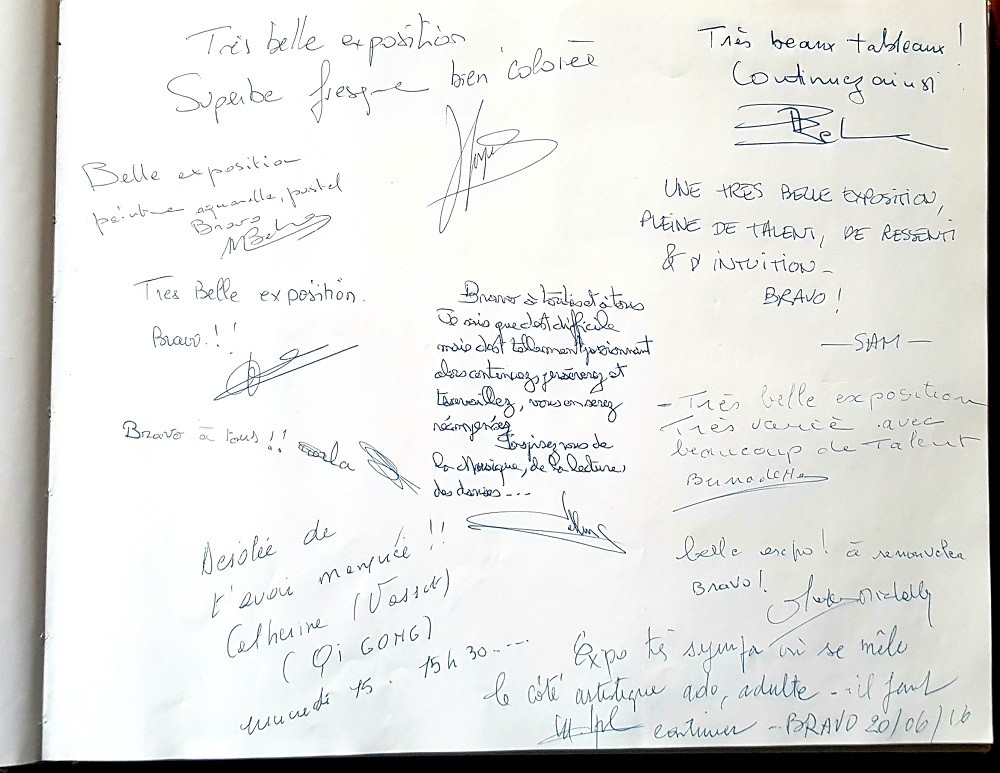 Très belle exposition
Superbe fresque bien colorée
Très beaux tableaux !
Continuez ainsi
Belle exposition
peinture aquarelle, pastel
Bravo
UNE TRES BELLE EXPOSITION,
PLEINE DE TALENT, DE RESSENTI
& D'INTUITION -
BRAVO !
— SAM —
Tres Belle exposition.
Bravo.!!
Bravo à toutes et à tous
Je sais que c'est difficile
mais c'est tellement passionnant
alors continuez, persévérez et
travaillez, vous en serez
récompensez
Inspirez vous de
la Musique, de la lecture,
des danses ---
Bravo à tous !!
- Très belle exposition
Très varié avec
beaucoup de Talent
Bernadette
Desolée de
t'avoir manquée !!
Catherine (Vasset)
(Qi GONG)
mercredi 15 . 15h30 ----
belle expo ! à renouveler
Bravo !
Expo très sympa où se mêle
le côté artistique ado, adulte - il faut
continuer - BRAVO 20/06/16